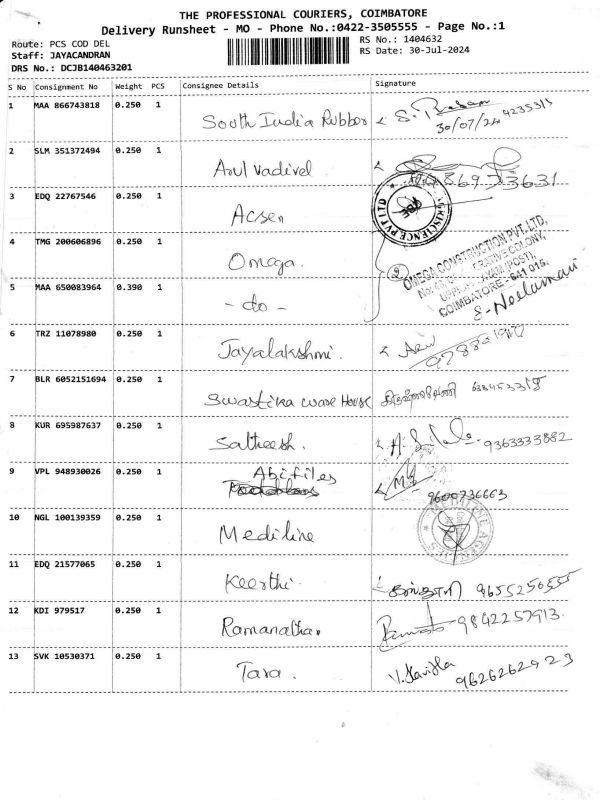 THE PROFESSIONAL COURIERS, COIMBATORE
Delivery Runsheet - MO - Phone No.:0422-3505555 - Page No.:1
Route: PCS COD DEL
Staff: JAYACANDRAN
DRS No.: DCJB140463201
RS No.: 1404632
RS Date: 30-Jul-2024
S No Consignment No Weight PCS Consignee Details Signature
1 MAA 866743818 0.250 1 South India Rubber
30/07/24
2 SLM 351372494 0.250 1 Arul vadivel
3 EDQ 22767546 0.250 1 Acsen
AGRISCIENCE PVT LTD
4 TMG 200606896 0.250 1 Omega.
2
OMEGA CONSTRUCTION PVT. LTD,
COLONY,
(POST),
COIMBATORE - 641 015.
5 MAA 650083964 0.390 1 - do -
6 TRZ 11078980 0.250 1 Jayalakshmi.
7 BLR 6052151694 0.250 1 Swastika ware House
8 KUR 695987637 0.250 1 Satheesh.
9363333882
9 VPL 948930026 0.250 1 Abifiles
9600736663
10 NGL 100139359 0.250 1 Mediline
MEDILINE AGENCIES
11 EDQ 21577065 0.250 1 Keerthi.
9655250555
12 KDI 979517 0.250 1 Ramanathan
9842257913.
13 SVK 10530371 0.250 1 Tara.
9626262923